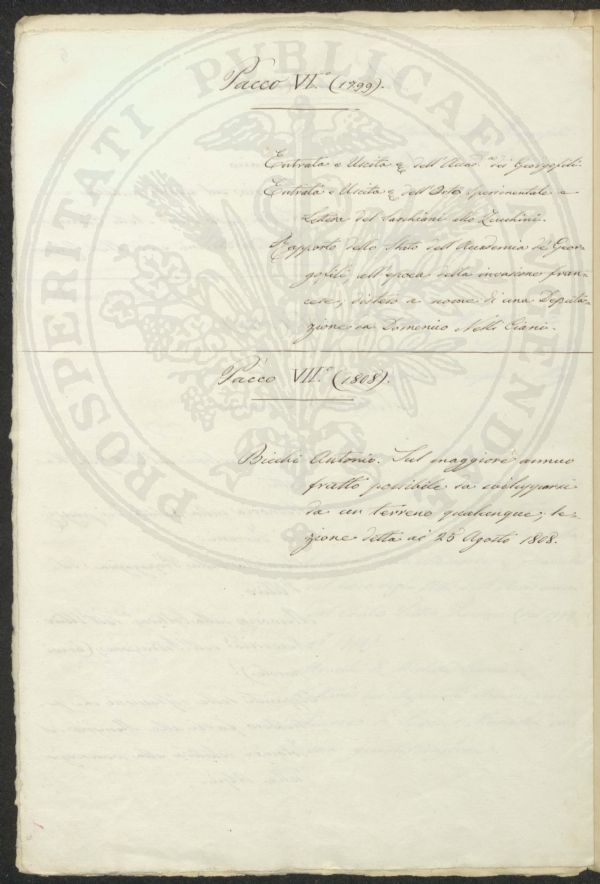 Pacco VI.° (1799).
Entrata e Uscita dell'Accad. dei Georgofili.
Entrata e Uscita dell'Orto Sperimentale e
Lettera del Sarchiani allo Zucchini.
Rapporto dello stato dell'Accademia de' Geor-
gofili, all'epoca della invasione fran-
cese; disteso a nome di una Deputa-
zione da Domenico Nelli Ciani.
Pacco VII.° (1808).
Bicchi Antonio. Sul maggiore annuo
frutto possibile da svilupparsi
da un terreno qualunque; le-
zione detta ai 25 Agosto 1808.
PROSPERITATI PUBLICAE AUGENDAE